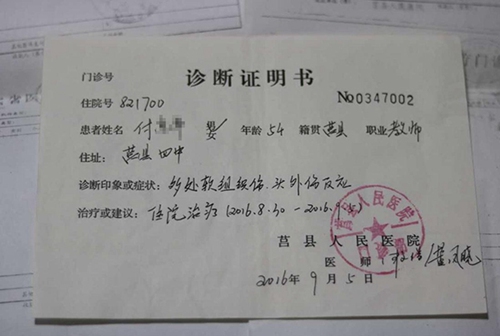 诊断证明书
门诊号
住院号 821700 No0347002
患者姓名 付 男女 年龄 54 籍贯 莒县 职业 教师
住址: 莒县四中
诊断印象或症状: 多处软组织伤、头外伤反应
治疗或建议: 住院治疗 (2016.8.30-2016.9.
莒县人民医院
莒县人民医院
医师
2016年9月5日